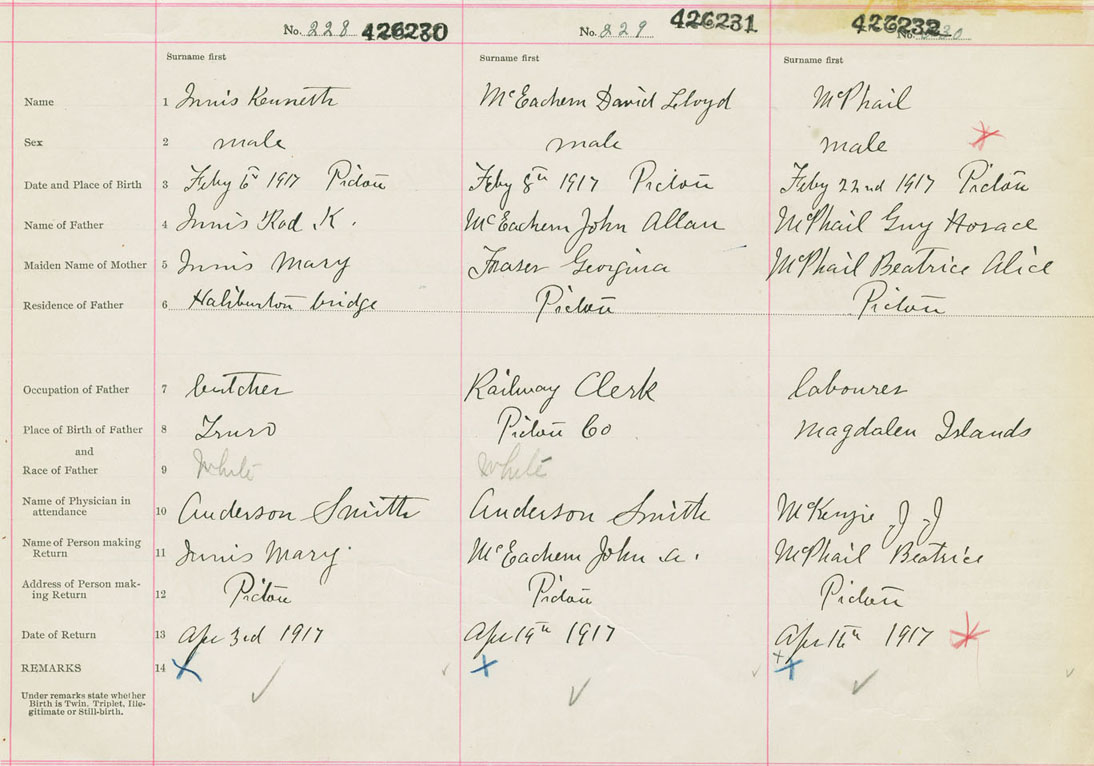 No. 228 426230 No. 229 426231 No. 230 426232
Surname first Surname first Surname first
Name 1 Innis Kenneth McEachern David Lloyd McPhail
Sex 2 male male male
Date and Place of Birth 3 Feby 6th 1917 Pictou Feby 8th 1917 Pictou Feby 22nd 1917 Pictou
Name of Father 4 Innis Rod K. McEachern John Allan McPhail Guy Horace
Maiden Name of Mother 5 Innis Mary Fraser Georgina McPhail Beatrice Alice
Residence of Father 6 Haliburton bridge Pictou Pictou
Occupation of Father 7 butcher Railway Clerk labourer
Place of Birth of Father 8 Truro Pictou Co Magdalen Islands
and
Race of Father 9 White White
Name of Physician in
attendance 10 Anderson Smith Anderson Smith McKenzie J J
Name of Person making
Return 11 Innis Mary McEachern John A. McPhail Beatrice
Address of Person mak-
ing Return 12 Pictou Pictou Pictou
Date of Return 13 Apr 3rd 1917 Apr 19th 1917 Apr 1917
REMARKS 14
Under remarks state whether
Birth is Twin, Triplet, Ille-
gitimate or Still-birth.